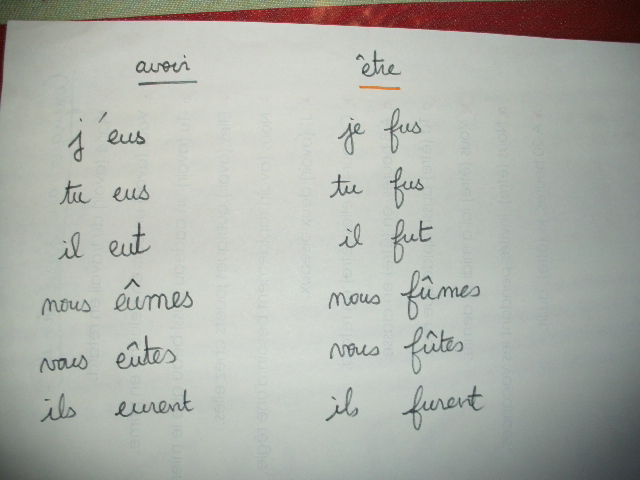 avoir être
j'eus je fus
tu eus tu fus
il eut il fut
nous eûmes nous fûmes
vous eûtes vous fûtes
ils eurent ils furent